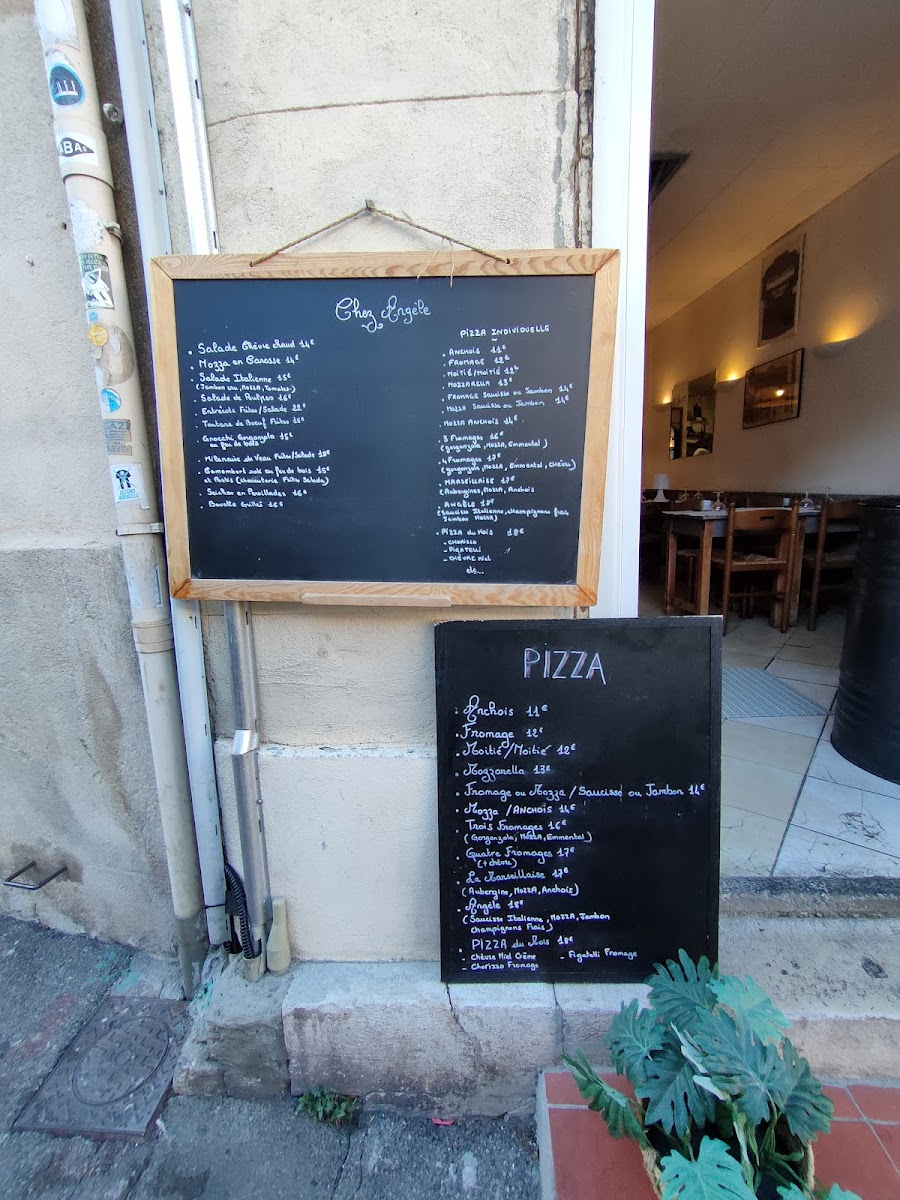 Chez Angèle
. Salade Chèvre chaud 14€
. Mozza en Carosse 14€
. Salade Italienne 15€
(Jambon cru, Mozza, Tomates)
. Salade de Poulpes 16€
. Entrecôte Frites/Salade 22€
. Tartare de Boeuf Frites
. Gnocchi Gorgonzola 15€
au feu de bois
. Milanaise de Veau Frites/Salade 18€
. Camembert au feu de bois 15€
(charcuterie Frites Salade)
. Seiches en Persillades 16€
Grillés 16€
PIZZA INDIVIDUELLE
. ANCHOIS 11€
. FROMAGE 12€
. MOITIÉ/MOITIÉ 12€
. MOZZARELLA 13€
. FROMAGE Saucisse ou Jambon 14€
. MOZZA Saucisse ou Jambon 14€
. MOZZA ANCHOIS 14€
. 3 FROMAGES 16€
(gorgonzola, MOZZA, Emmental)
. 4 FROMAGES 17€
(gorgonzola, MOZZA, Emmental, CHÈVRE)
. MARSEILLAISE 17€
(Aubergines, MOZZA, Anchois
. ANGÈLE 18€
(Saucisse Italienne, champignons frais,
Jambon MOZZA)
. PIZZA du Mois 18€
- CHORIZO
- FIGATELLI
- CHÈVRE Miel
etc...
PIZZA
. Anchois 11€
. Fromage 12€
. Moitié/Moitié 12€
. Mozzarella 13€
. Fromage ou Mozza/Saucisse ou Jambon 14€
. Mozza /ANCHOIS 14€
. Trois Fromages 16€
(Gorgonzola, MOZZA, Emmental)
. Quatre Fromages 17€
(+chèvre)
. La Marseillaise 17€
(Aubergine, MOZZA, Anchois)
. Angèle 18€
(Saucisse Italienne, MOZZA, Jambon
champignons Frais)
. PIZZA du Mois 18€
- Chèvre Miel Crème - Figatelli Fromage
- Chorizzo Fromage